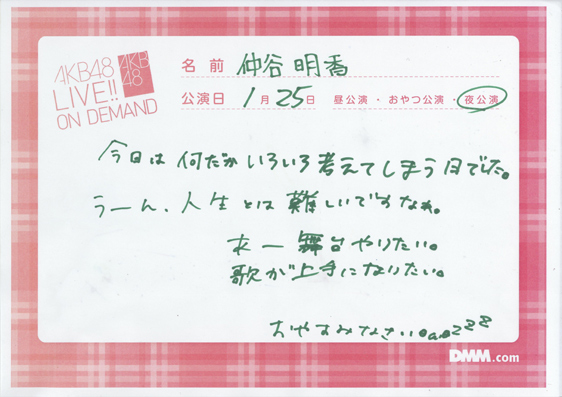 AKB48
LIVE!!
ON DEMAND
AKB
48
名前 仲谷明香
公演日 1月25日 昼公演・おやつ公演・夜公演
今日は何だかいろいろ考えてしまう日でした。
うーん、人生とは難しいですなぁ。
舞台やりたい。
歌が上手になりたい。
おやすみなさい
DMM.com